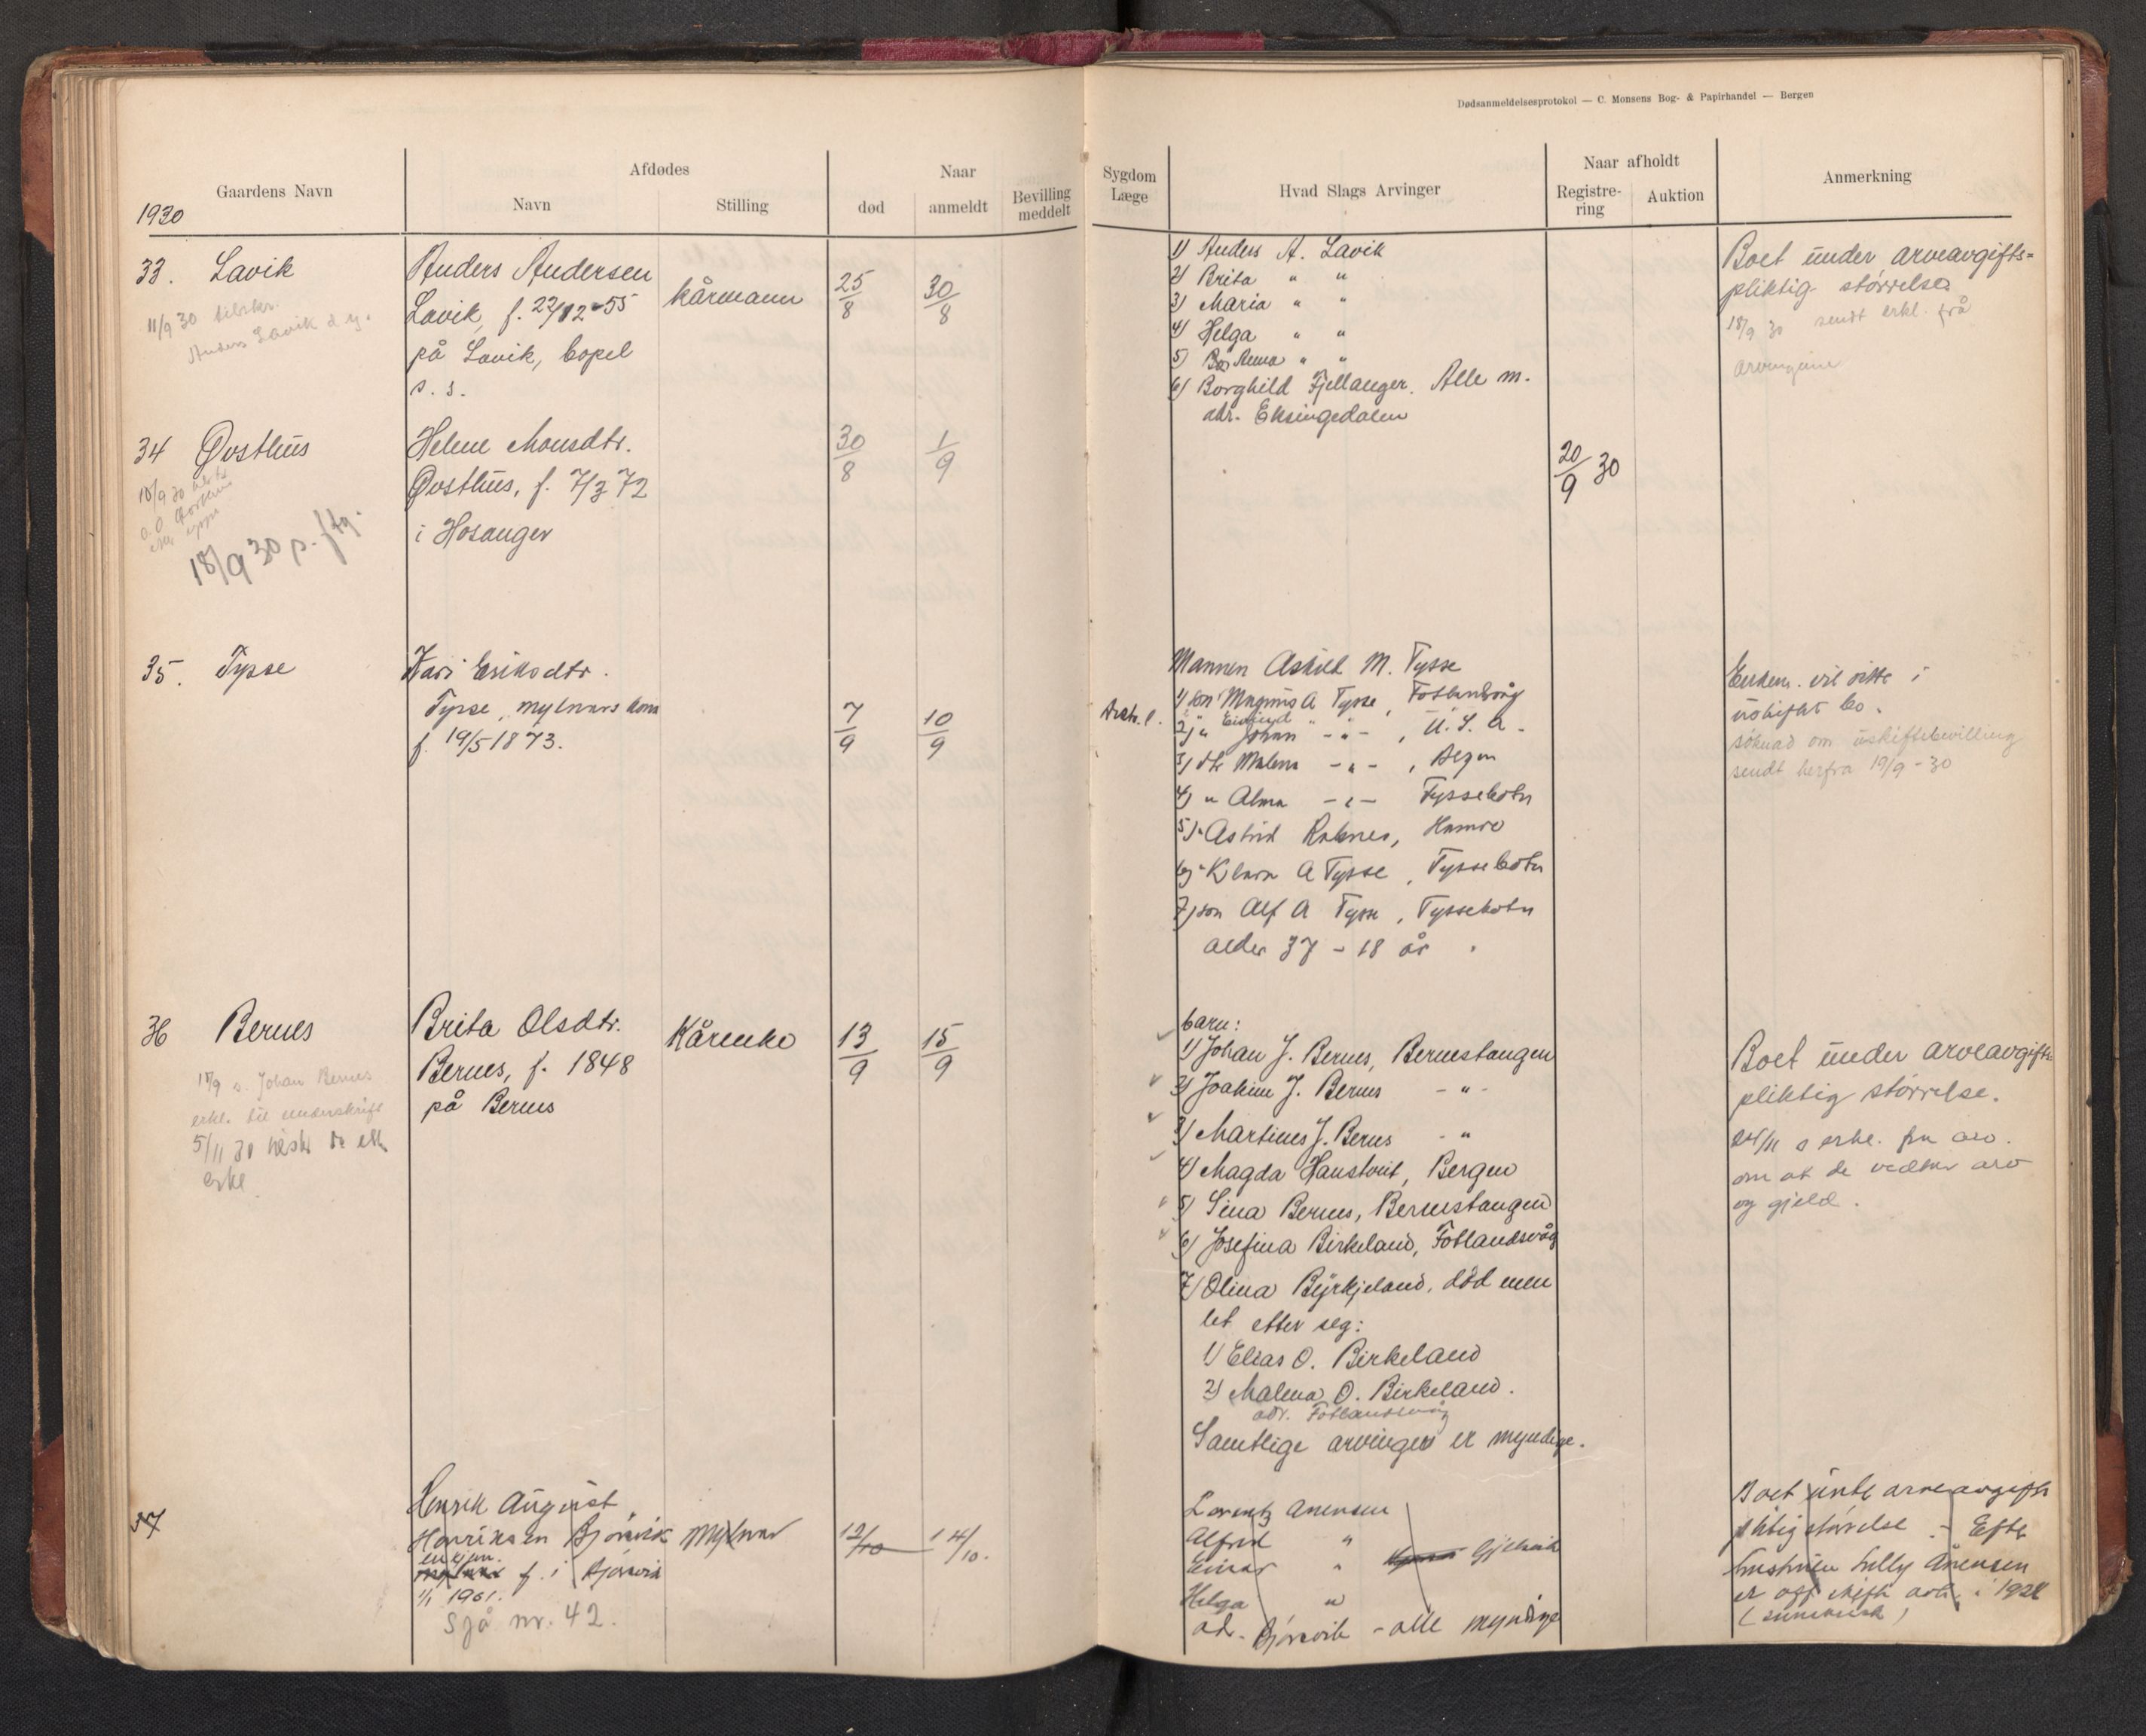 Dødsanmeldelsesprotokol — C. Monsens Bog- & Papirhandel — Bergen
Gaardens Navn
Afdødes
Navn
Stilling
Naar
død
anmeldt
Bevilling meddelt
Sygdom
Læge
Hvad Slags Arvinger
Naar afholdt
Registre-
ring
Auktion
Anmerkning
1930
33. Lavik
11/9 30 tilskr.
Anders Lavik d. y.
Anders Andersen
Lavik, f. 22/12-55
på Lavik, bopel
s. s.
kårmann
25/8
30/8
1) Anders A. Lavik
2) Brita " "
3) Maria " "
4) Helga " "
5) Anna " "
6) Borghild Fjellanger. Alle m.
adr. Eksingedalen
Boet under arveavgifts=
pliktig størrelse
18/9 30 sendt erkl. frå
arvingene
34 Øvsthus
18/9 30 p.
Helene Monsdtr.
Øvsthus, f. 7/3 72
i Hosanger
30/8
1/9
20/9 30
35. Tysse
Kari Eriksdtr.
Tysse, mylnars kona
f. 19/5 1873.
7/9
10/9
Distr. l.
Mannen Askild M. Tysse
1) son Magnus A Tysse, Fotlandsvåg
2) " Johan - " - , U. S. A.
3) dtr Malena - " - , Bergen
4) " Alma - " - Tyssebotn
5) " Astrid Raknes, Hamre
6) " Klara A Tysse, Tyssebotn
7) son Alf A Tysse, Tyssebotn
alder 37 - 18 år.
Enkem. vil sitte i
uskiftet bo.
søknad om uskiftebevilling
sendt herfra 19/9 - 30
36 Bernes
s. Johan Bernes
erkl. til underskrift
5/11 30
erkl
Brita Olsdtr.
Bernes, f. 1848
på Bernes
Kårenke
13/9
15/9
barn:
1) Johan J. Bernes, Bernestangen
2) Joakim J. Bernes - " -
3) Martines J. Bernes - "
4) Magda Haustveit, Bergen
5) Sina Bernes, Bernestangen
6) Josefina Birkeland, Fotlandsvåg
7) Olina Byrkjeland, død men
let etter seg:
1) Elias O. Birkeland
2) Malena O. Birkeland.
adr. Fotlandsvåg
Samtlige arvinger er myndige.
Boet under arveavgifts
pliktig størrelse.
24/11 s erkl. fra arv.
om at de vedtar arv
og gjeld.
37
Henrik August
Henriksen Bjørsvik
enkjem.
f. i Bjørsvik
1/1 1901.
Sjå nr. 42.
Mylnar
12/10
14/10.
Lorentz Anensen
Alfred "
Einar " Gjelsvik
Helga "
adr. Bjørsvik - alle myndige
Boet unde arveavgifts
pliktig størrelse. - Efte
hustruen Lilly Anensen
er off. skifte avh. i 1928